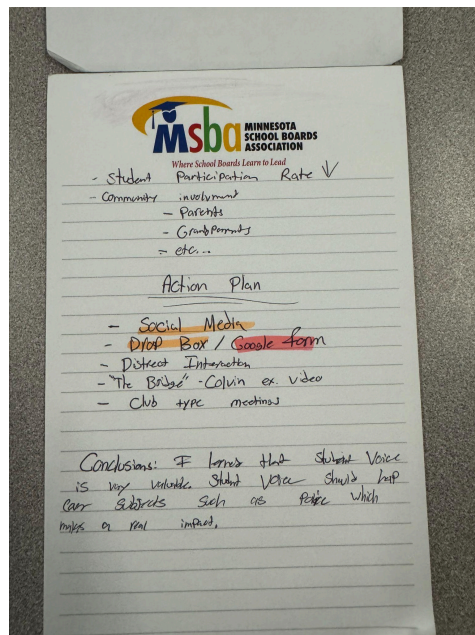 Msba MINNESOTA
SCHOOL BOARDS
ASSOCIATION
Where School Boards Learn to Lead
- Student Participation Rate ↓
- Community involvment
- Parents
- Grandparents
- etc...
Action Plan
- Social Media
- Drop Box / Google form
- District Interaction
- "The Bridge" - Colvin ex. video
- Club type meetings
Conclusions: I lerned that Student Voice
is very valuable. Student Voice should
subjects such as which
makes a real impact.